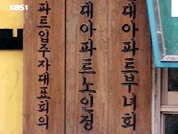 KBS1
파트입주자대표회의
대아파트노인정
대아파트부녀회